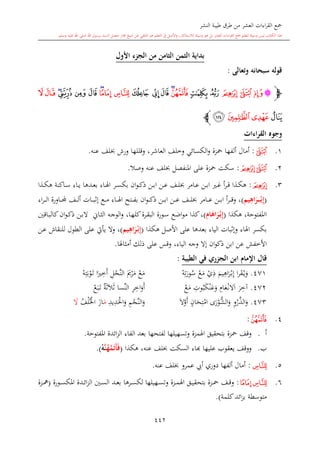 جمع القراءات العشر من طرق طيبة النشر
بداية الثمن الثامن من الجزء الأول
قوله سبحانه وتعالى :
۞ وَإِذِ ٱبْتَلَىٰٓ إِبْرَٰهِـۧمَ رَبُّهُۥ بِكَلِمَٰتٍ فَأَتَمَّهُنَّ قَالَ إِنِّي جَاعِلُكَ لِلنَّاسِ إِمَامًا قَالَ وَمِن ذُرِّيَّتِي قَالَ لَا
يَنَالُ عَهْدِي ٱلظَّٰلِمِينَ ١٢٤
وجوه القراءات
١. ٱبْتَلَىٰٓ : أمال ألفها حمزة والكسائي وخلف العاشر، وقللها ورش بخلف عنه.
٢. ٱبْتَلَىٰٓ : سكت حمزة على المنفصل بخلف عنه وصلا.
٣. إِبْرَٰهِـۧمَ : هكذا قرأ غير ابن عامر بخلف عن ابن ذكوان بكسر الهاء بعدها ياء ساكنة هكذا
(إِبْرَاهِيمَ)، وقرأ ابن عامر بخلف عن ابن ذكوان بفتح الهاء مع إثبات ألف لمجاورة الراء
المفتوحة، هكذا (إِبْرَاهَامَ)،كما مواضع سورة البقرة كلها، والوجه الثاني لابن ذكوان كالباقين
بكسر الهاء وإثبات الياء بعدها على الأصل هكذا (إِبْرَاهِيمَ)، ولا يأتي على الطول للنقاش عن
الأخفش عن ابن ذكوان إلا وجه الياء، وقس على ذلك أمثالها.
قال الإمام ابن الجزري في الطيبة :
٤٧١. وَيَقْرَا إِبْرَاهِيمَ ذِي مَعْ سُورَتِهْ مَعْ مَرْيَمَ النَّحْلِ أَخِيرًا تَوْبَتِهْ
٤٧٢. آخِرَ الاَنْعَامِ وَعَنْكَبُوتِ مَعْ أَوَاخِرِ النِّسَا ثَلَاثَةٌ تَبَعْ
٤٧٣. وَالذَّرْوِ وَالشُّورَى امْتِحَانٍ أَوَّلاَ وَالنَّجْمِ وَالْحَدِيدِ مَازَ الْخُلْفُ لاَ
٤. فَأَتَمَّهُنَّ :
أ . وقف حمزة بتحقيق الهمزة وتسهيلها لفتحها بعد الفاء الزائدة المفتوحة.
ب. ووقف يعقوب عليها بهاء السكت بخلف عنه، هكذا (فَأَتَمَّهُنَّهْ).
٥. لِلنَّاسِ : أمال ألفها دوري أبي عمرو بخلف عنه.
٦. لِلنَّاسِ إِمَامًا : وقف حمزة بتحقيق الهمزة وتسهيلها لكسرها بعد السين الزائدة المكسورة (همزة
متوسطة بزائد كلمة).
٤٤٢